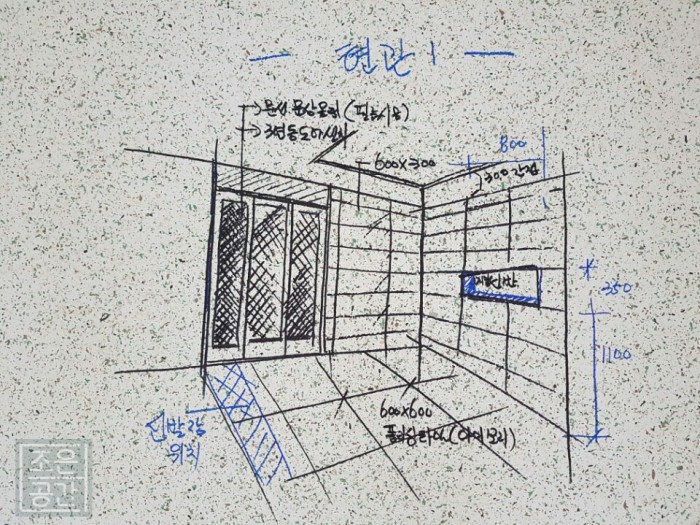 현관 1
문선 몰딩 (필름시공)
3연동도어설치
600×300
800
300 간접
350
1100
600×600
폴리싱타일 (아이보리)
신발장
위치
조은
공간